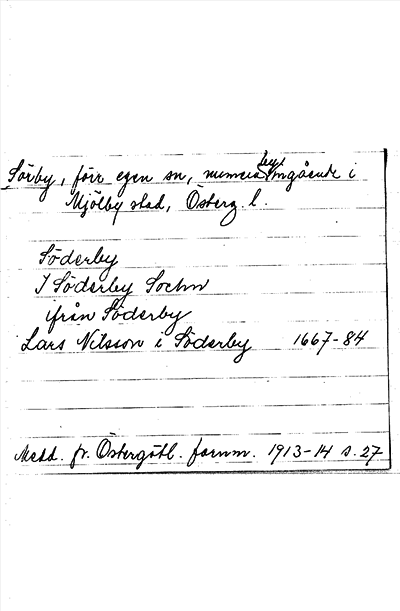 Sörby, förr egen sn, numera ingående i
Mjölby stad, Österg. l.
Söderby
I Söderby Sochn
ifrån Söderby
Lars Nilsson i Söderby 1667-84
Medd. fr. Östergötl. fornm. 1913-14 s. 27